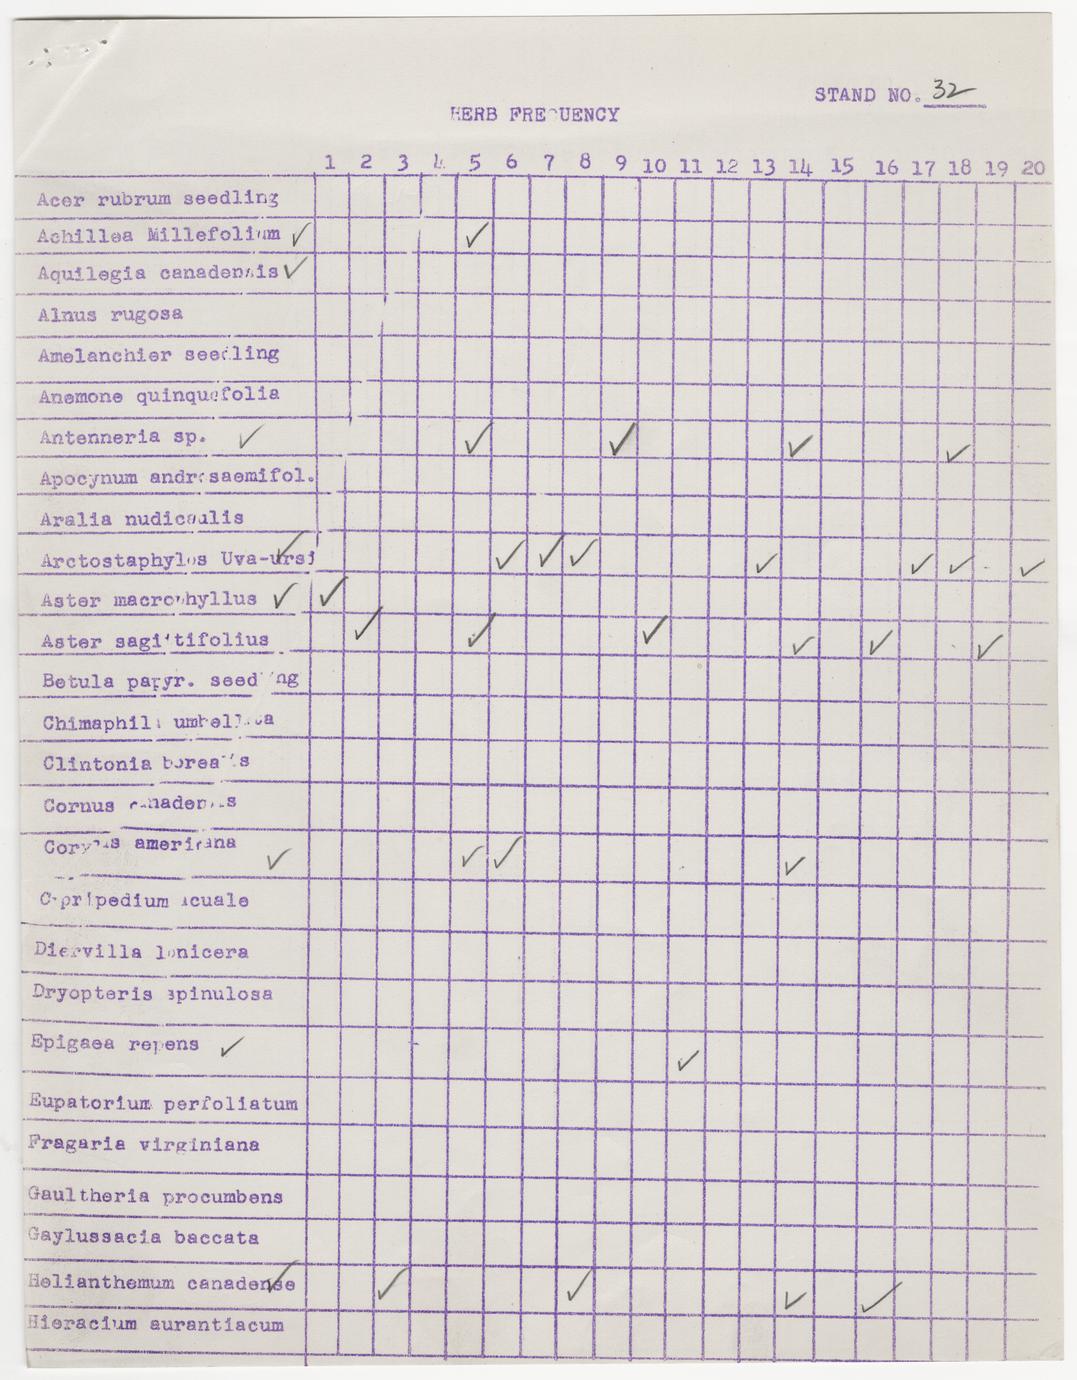 STAND NO. 32
HERB FRE UENCY
1 2 3 4 5 6 7 8 9 10 11 12 13 14 15 16 17 18 19 20
Acer rubrum seedling
Achillea Millefolium ✓ ✓
Aquilegia canadensis ✓
Alnus rugosa
Amelanchier seedling
Anemone quinquefolia
Antenneria sp. ✓ ✓ ✓ ✓ ✓
Apocynum androsaemifol.
Aralia nudicaulis
Arctostaphylos Uva-ursi ✓ ✓ ✓ ✓ ✓ ✓ ✓ ✓
Aster macrophyllus ✓ ✓
Aster sagittifolius ✓ ✓ ✓ ✓ ✓ ✓
Betula papyr. seedling
Chimaphila umbellata
Clintonia borealis
Cornus canadensis
Corylus americana ✓ ✓ ✓ ✓
Cypripedium acuale
Diervilla lonicera
Dryopteris spinulosa
Epigaea repens ✓ ✓
Eupatorium perfoliatum
Fragaria virginiana
Gaultheria procumbens
Gaylussacia baccata
Helianthemum canadense ✓ ✓ ✓ ✓ ✓
Hieracium aurantiacum